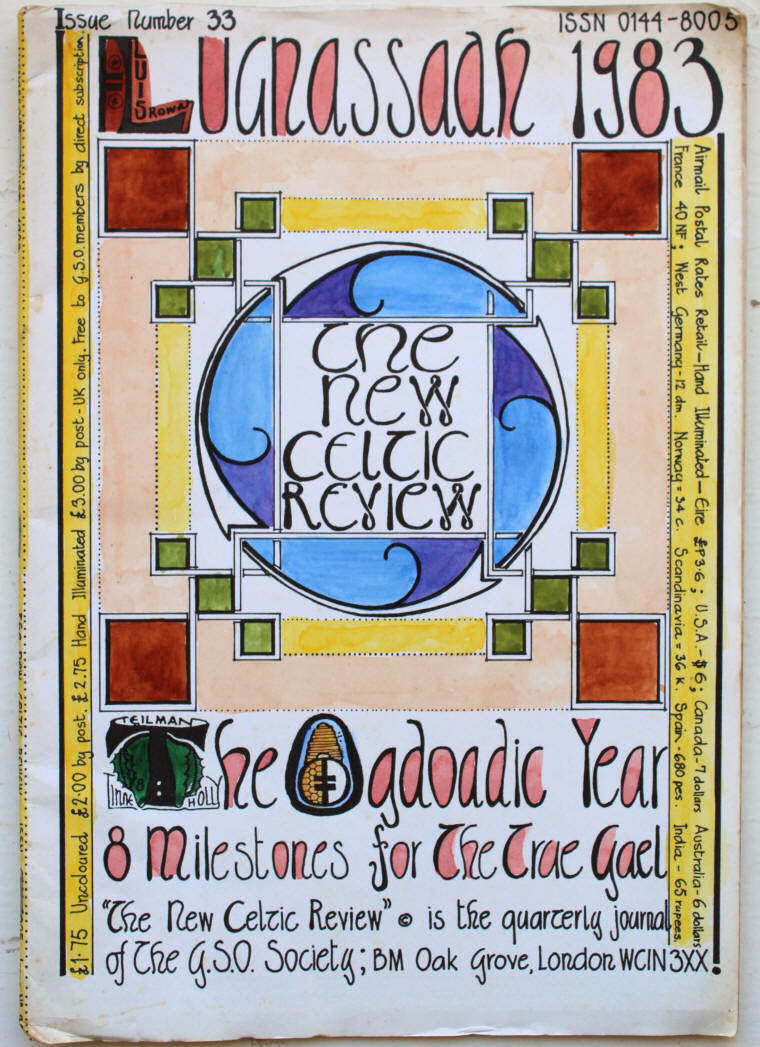 Issue Number 33
ISSN 0144-8005
LUIS
ROWAN
Lugnassadh 1983
£1·75 Uncoloured £2·00 by post. £2.75 Hand Illuminated £3.00 by post - UK only. Free to G.S.O. members by direct subscription.
Airmail Postal Rates Retail—Hand Illuminated—Eire £P3·6; U.S.A.-$6; Canada-7 dollars Australia-6 dollars
France 40 NF; West Germany-12 dm. Norway = 34 c. Scandinavia = 36 K. Spain-680 pes. India - 65 rupees.
The
New
Celtic
Review
TEILMAN
TINNE 8: HOLLY
The Ogdoadic Year
8 Milestones for The True Gael
"The New Celtic Review" © is the quarterly journal
of The G.S.O. Society; BM Oak Grove, London WC1N 3XX.